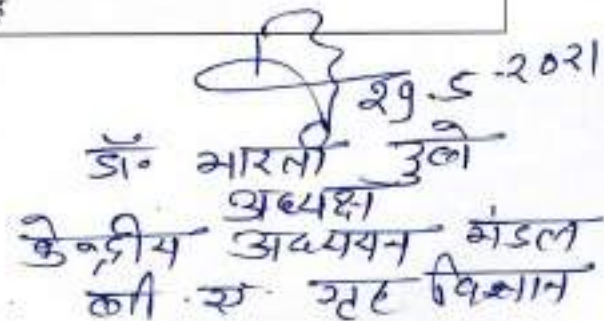 29.5-2021
डॉ. भारती दुबे
अध्यक्ष
केन्द्रीय अध्ययन मंडल
बी.ए. गृह विज्ञान